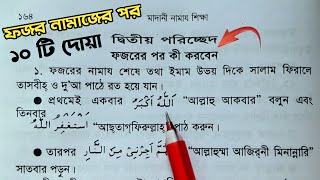 ফজর নামাজের পর
১০ টি দোয়া
১৬৪
মাদানী নামায শিক্ষা
দ্বিতীয় পরিচ্ছেদ
ফজরের পর কী করবেন
১. ফজরের নামায শেষে তথা ইমাম উভয় দিকে সালাম ফিরালে
তাসবীহ ও দু'আ পাঠে রত হয়ে যান।
● প্রথমেই একবার اَللّٰهُ اَكْبَرُ “আল্লাহু আকবার” বলুন এবং
তিনবার اَسْتَغْفِرُ اللّٰهَ “আছতাগ্ফিরুল্লাহ” পাঠ করুন।
● তারপর اَللّٰهُمَّ اَجِرْنِيْ مِنَ النَّارِ “আল্লাহুম্মা আজির্‌নী মিনান্নারি”
সাতবার পড়ুন।